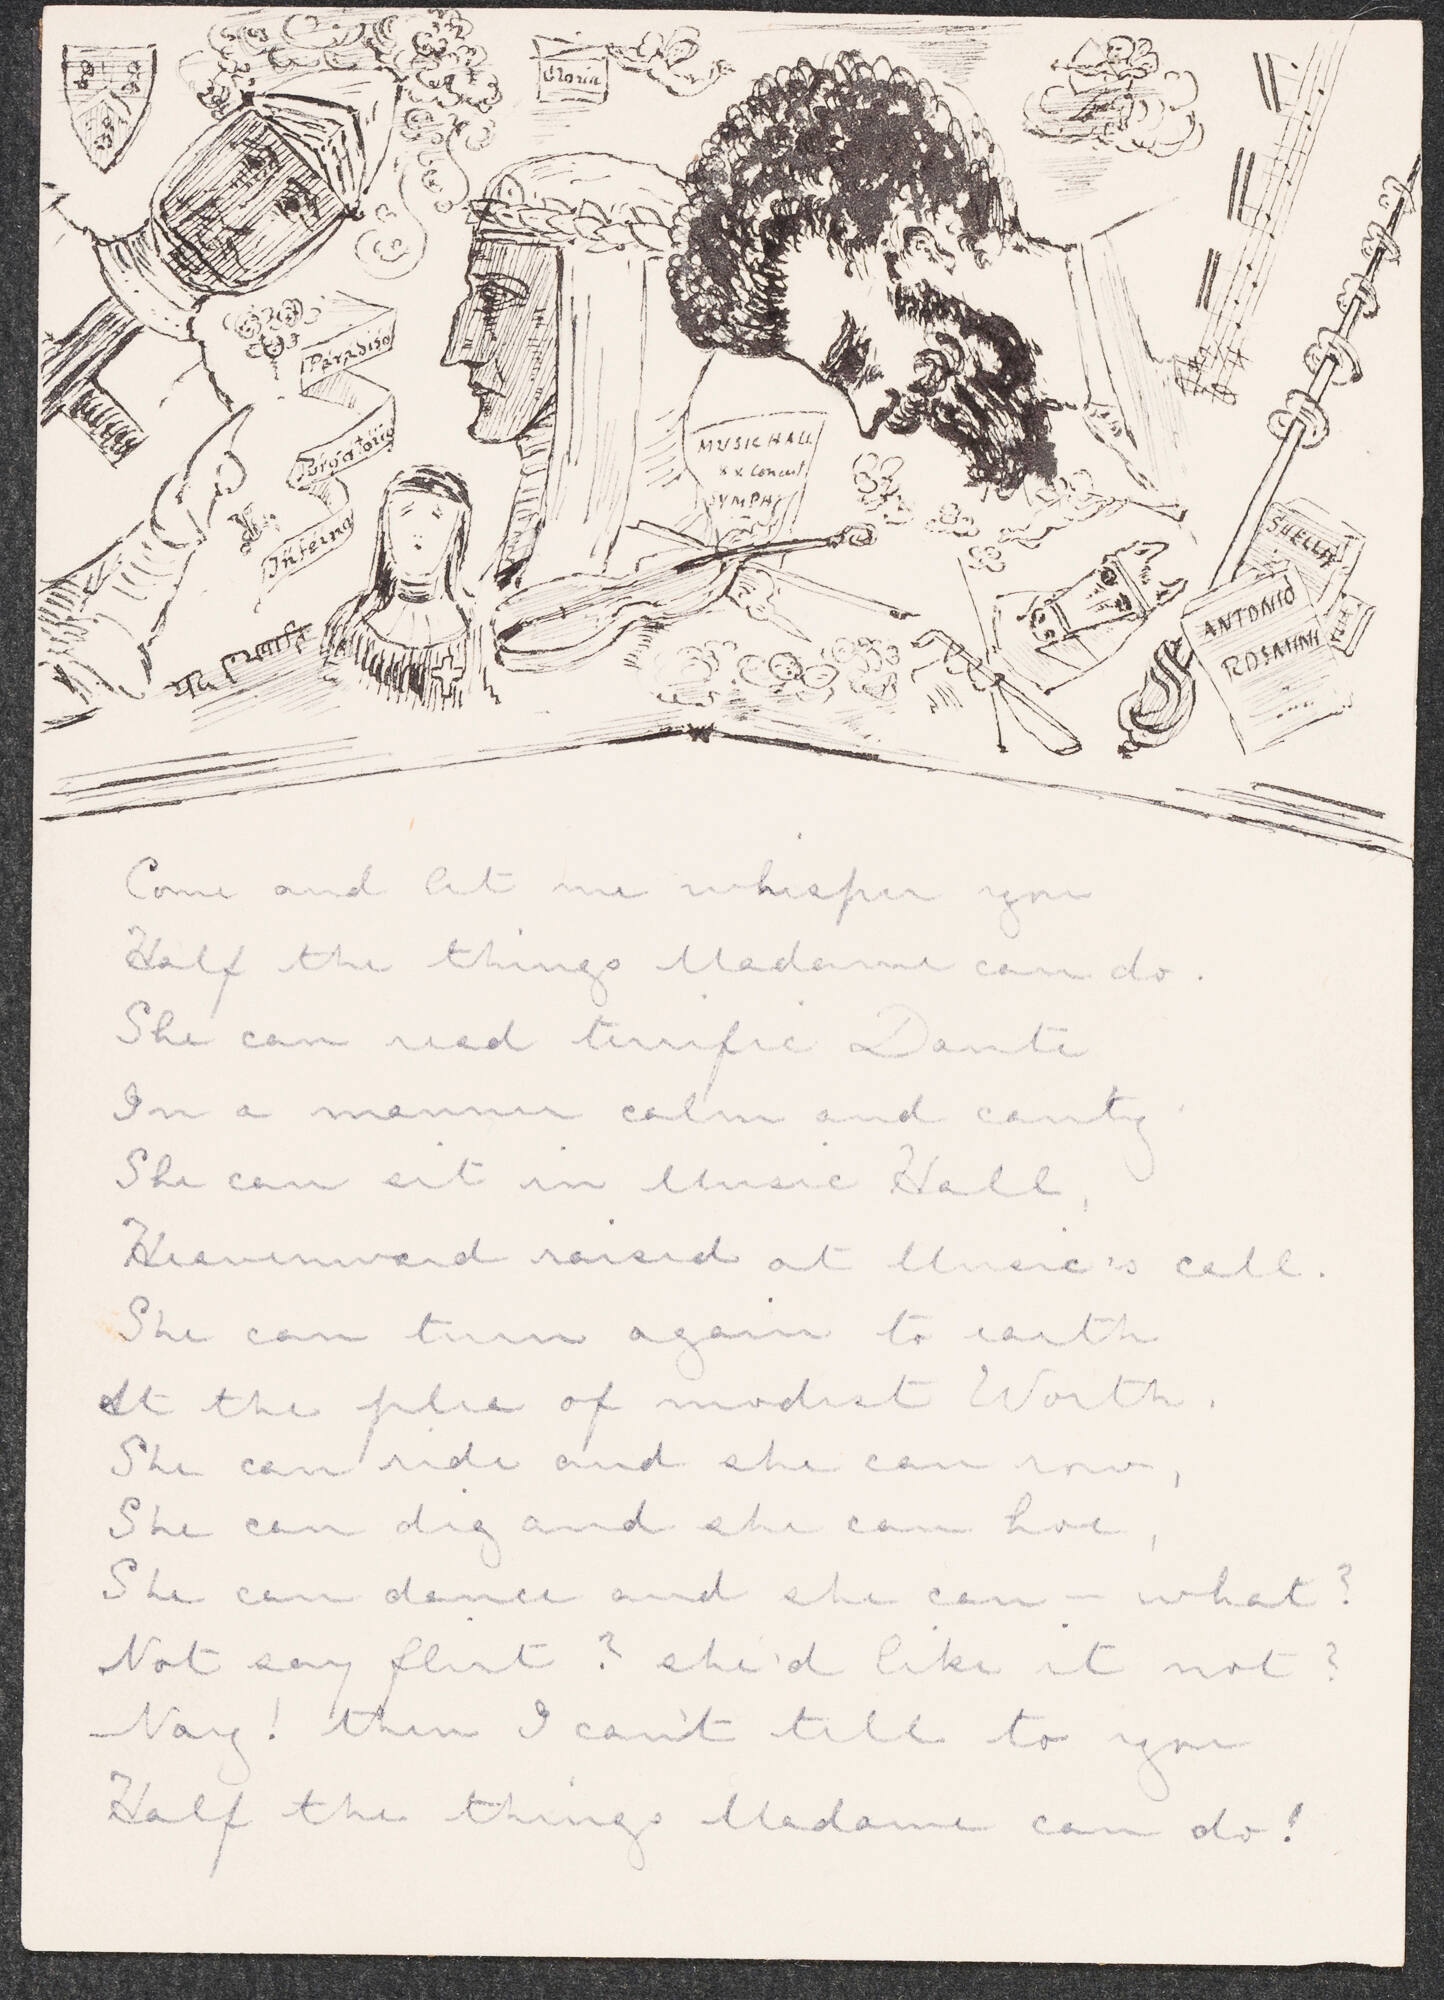 Gloria
Paradiso
Purgatorio
Inferno
MUSIC HALL
x x Concert
SYMPH
SUELLA
ANTONIO
ROSAMINH
Come and let me whisper you
Half the things Madame can do.
She can read terrific Dante
In a manner calm and canty.
She can sit in Music Hall,
Heavenward raised at Music's call.
She can turn again to earth
At the plea of modest Worth.
She can ride and she can row,
She can dig and she can hoe,
She can dance and she can – what?
Not say flirt? she'd like it not?
Nay! then I can't tell to you
Half the things Madame can do!